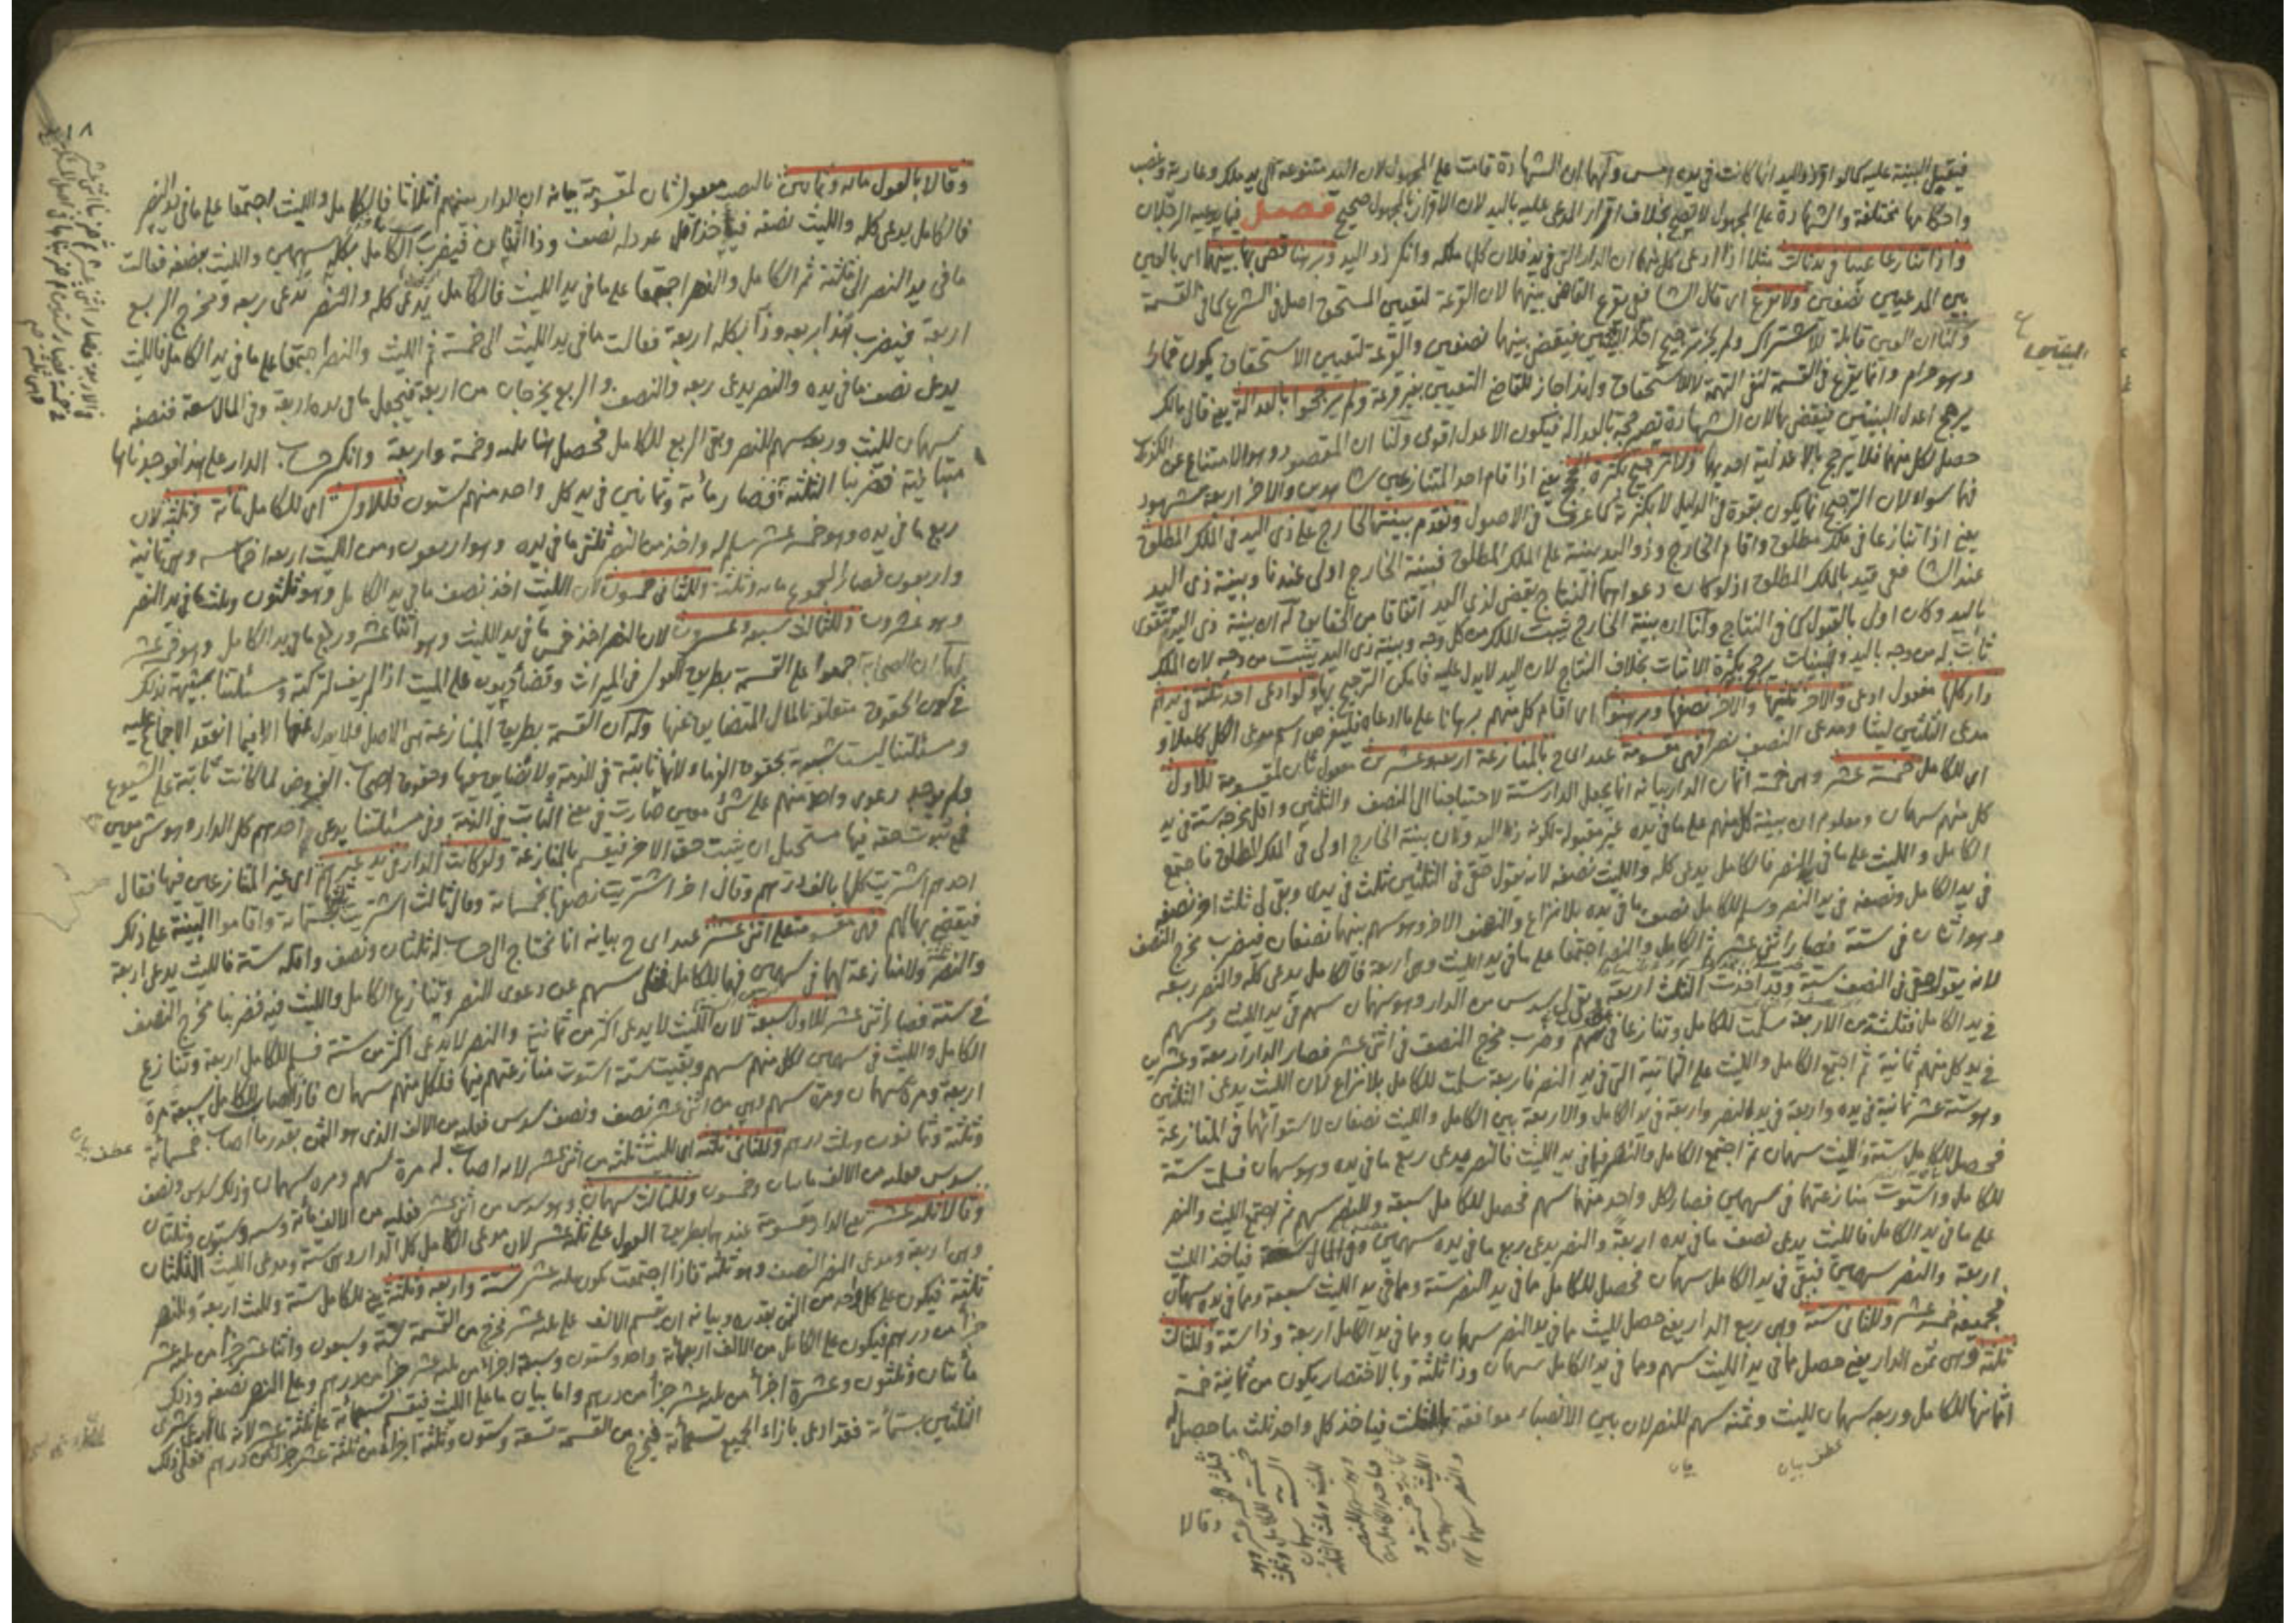 فيقبل البينة عليه كما لو اقر ذو اليد انها كانت في يده امس ولهما ان الشهادة قامت على المجهول لان اليد متنوعة الى يد ملك وعارية وغصب
واحكامها مختلفة والشهادة على المجهول لا تصح بخلاف اقرار المدعى عليه باليد لان الاقرار بالمجهول صحيح فصل فيما يدعيه الرجلان
واذا تنازعا عينا في يد ثالث مثلا اذا ادعى كل منهما ان الدار التي في يد فلان كلها ملكه وانكر ذو اليد وبرهنا قضى بها بينهما اي بالعين
بين المدعيين نصفين ولا يقرع اي قال الشافعي يقرع القاضي بينهما لان القرعة لتعيين المستحق اصل في الشرع كما في القسمة
ولنا ان العين قابلة للاشتراك ولم يجز ترجيح احد البينتين فيقضي بينهما نصفين والقرعة لتعيين الاستحقاق يكون قمارا
وهو حرام وانما يقرع في القسمة لنفي التهمة لا للاستحقاق ولهذا جاز للقاضي التعيين بغير قرعة ولم يرجحوا بالعدالة يعني قال مالك
يرجح اعدل البينتين فيقضي بها لان الشهادة تصير حجة بالعدالة فيكون الاعدل اقوى ولنا ان المقصود وهو الامتناع عن الكذب
حصل لكل منهما فلا يرجح بالاعدلية احديهما ولا ترجيح بكثرة الحجج يعني اذا قام احد المتنازعين شاهدين والاخر اربعة شهود
فهما سواء لان الترجيح انما يكون بقوة في الدليل لا بكثرته كما عرف في الاصول ونقدم بينة الخارج على ذي اليد في الملك المطلق
يعني اذا تنازعا في ملك مطلق واقام الخارج وذو اليد بينة على الملك المطلق فبينة الخارج اولى عندنا وبينة ذي اليد
عند الشافعي قيد بالملك المطلق اذ لو كان دعواهما النتاج يقضى لذي اليد اتفاقا من الحقايق له ان بينة ذي اليد تتقوى
باليد وكان اولى بالقبول كما في النتاج ولنا ان بينة الخارج تثبت الملك من كل وجه وبينة ذي اليد يثبت من وجه لان الملك
ثابت له من وجه باليد والبينات يرجح بكثرة الاثبات بخلاف النتاج لان اليد لا يدل عليه فامكن الترجيح بها ولو ادعى احد ثلثة في يدهم
دار كلها مفعول ادعى والاخر ثلثيها والاخر نصفها وبرهنوا اي اقام كل منهم برهانا على ما ادعاه فلنفرض اسم مدعي الكل كاملا و
مدعي الثلثين ليثا ومدعي النصف نصرا فهي مقسومة عند ابي ح بالمنازعة اربعة وعشرين مفعول ثان لمقسومة للاول
اي للكامل خمسة عشر وهي خمسة اثمان الدار بيانه انا نجعل الدار ستة لاحتياجنا الى النصف والثلثين واقل مخرجه ستة في يد
كل منهم سهمان ومعلوم ان بينة كل منهم على ما في يده غير مقبولة لكونه ذا اليد وان بينة الخارج اولى في الملك المطلق فاجتمع
الكامل والليث على ما في يد النصر فالكامل يدعي كله والليث نصفه لانه يقول حقي في الثلثين ثلث في يدي وبقي لي ثلث اخر نصفه
في يد الكامل ونصفه في يد النصر وسلم للكامل نصف ما في يده بلا نزاع والنصف الاخر وهو سهم بينهما نصفان فيضرب مخرج النصف
وهو اثنان في ستة فصار اثني عشر ثم الكامل والنصر اجتمعا على ما في يد الليث وهي اربعة فالكامل يدعي كله والنصر ربعه
لانه يقول حقي في النصف ستة وقد اخذت الثلث اربعة بقي لي سدس من الدار وهو سهمان سهم في يد الليث وسهم
في يد الكامل فثلثة من الاربعة سلمت للكامل وتنازعا في سهم وضرب مخرج النصف في اثني عشر فصار الدار اربعة وعشرين
في يد كل منهم ثمانية ثم اجتمع الكامل والليث على الثمانية التي في يد النصر فاربعة سلمت للكامل بلا نزاع لان الليث يدعي الثلثين
وهو ستة عشر ثمانية في يده واربعة في يد النصر واربعة في يد الكامل والاربعة بين الكامل والليث نصفان لاستوائهما في المنازعة
فحصل للكامل ستة ولليث سهمان ثم اجتمع الكامل والنصر فيما في يد الليث فالنصر يدعي ربع ما في يده وهو سهمان فسلمت ستة
للكامل واستوت منازعتهما في سهمين فصار لكل واحد منهما سهم فحصل للكامل سبعة وللنصر سهم ثم اجتمع الليث والنصر
على ما في يد الكامل فالليث يدعي نصف ما في يده اربعة والنصر يدعي ربع ما في يده سهمين وفي المال سعة فياخذ الليث
اربعة والنصر سهمين فبقي في يد الكامل سهمان فحصل للكامل ما في يد النصر ستة ومما في يد الليث سبعة ومما في يده سهمان
فجميعه خمسة عشر وللثاني ستة وهي ربع الدار يعني حصل لليث مما في يد النصر سهمان ومما في يد الكامل اربعة وذا ستة وللثالث
ثلثة وهي ثمن الدار يعني حصل مما في يد الليث سهم ومما في يد الكامل سهمان وذا ثلثة وبالاختصار يكون من ثمانية خمسة
اثمانها للكامل وربعه سهمان لليث وثمنه سهم للنصر لان بين الانصباء موافقة بالثلث فياخذ كل واحد ثلث ما حصل له
البينتين
عطف بيان
بيان
وقالا
وقالا بالعول مائة وثمانين بالنصب مفعول ثان لمقسومة بيانه ان الدار بينهم اثلاثا فالكامل والليث اجتمعا على ما في يد النصر
فالكامل يدعي كله والليث نصفه فياخذ اقل عدد له نصف وذا اثنان فيضرب الكامل بكله سهمين والليث بنصفه فعالت
ما في يد النصر الى ثلثة ثم الكامل والنصر اجتمعا على ما في يد الليث فالكامل يدعي كله والنصر يدعي ربعه ومخرج الربع
اربعة فيضرب هذا بربعه وذا بكله اربعة فعالت ما في يد الليث الى خمسة ثم الليث والنصر اجتمعا على ما في يد الكامل فالليث
يدعي نصف ما في يده والنصر يدعي ربعه والنصف والربع يخرجان من اربعة فيجعل ما في يده اربعة وفي المال سعة فنصفه
سهمان لليث وربعه سهم للنصر وبقي الربع للكامل فحصل هنا ثلثة وخمسة واربعة وانكسر حساب الدار على هذا فوجدناها
متباينة فضربنا الثلثة فصار مائة وثمانين في يد كل واحد منهم ستون فللاول اي للكامل مائة وثلثة لان
ربع ما في يده وهو خمسة عشر سلم له واخذ من النصر ثلثي ما في يده وهو اربعون ومن الليث اربعة اخماسه وهي ثمانية
واربعون فصار المجموع مائة وثلثة وللثاني خمسون لان الليث اخذ نصف ما في يد الكامل وهو ثلثون وثلث ما في يد النصر
وهو عشرون وللثالث سبعة وعشرون لان النصر اخذ خمس ما في يد الليث وهو اثنا عشر وربع ما في يد الكامل وهو خمسة عشر
لهما ان الصحابة اجمعوا على القسمة بطريق العول في الميراث وقضاء ديون على الميت اذا لم يف تركته ومسئلتنا شبيهة بذلك
في كون الحقوق متعلقة بالمال المتضايق عنها وله ان القسمة بطريق المنازعة هي الاصل فلا يعدل عنها الا فيما انعقد الاجماع عليه
ومسئلتنا ليست شبيهة بحقوق الغرماء لانها ثابتة في الذمة ولا تضايق فيها وحقوق اصحاب الفروض لما كانت ثابتة على الشيوع
ولم يوجد دعوى واحد منهم على شئ معين صارت في معنى الثابت في الذمة وفي مسئلتنا يدعي احدهم كل الدار وهو شئ معين
فمع ثبوت حقه فيها مستحيل ان يثبت حق الاخر فيقسم بالمنازعة ولو كانت الدار في يد غيرهم اي غير المتنازعين فيها فقال
احدهم اشتريت كلها بالف درهم وقال اخر اشتريت نصفها بخمسمائة وقال ثالث اشتريت ثلثيها بستمائة واقاموا البينة على ذلك
فيقضي بها لهم فهي مقسومة على اثني عشر عند ابي ح بيانه انا نحتاج الى حساب له ثلثان ونصف واقله ستة فالليث يدعي اربعة
والنصر ثلثة ولا منازعة لهما في سهمين فهما للكامل فضل سهم عن دعوى النصر وتنازع الكامل والليث فيه فضربنا مخرج النصف
في ستة فصار اثني عشر للاول سبعة لان الليث لا يدعي اكثر من ثمانية والنصر لا يدعي اكثر من ستة فسلم للكامل اربعة وتنازع
الكامل والليث في سهمين لكل منهم سهم وبقيت ستة استوت منازعتهم فيها فلكل منهم سهمان فاذا اصاب للكامل سبعة مرة
اربعة ومرة سهمان ومرة سهم وهي من اثني عشر نصف ونصف سدس فعليه من الالف الذي هو الثمن بقدر ما اصاب خمسمائة
وثلثة وثمانون وثلث درهم وللثاني ثلثة اي لليث ثلثة من اثني عشر لانه اصاب له مرة سهم ومرة سهمان وذلك سدس ونصف
سدس فعليه من الالف مائتان وخمسون وللثالث سهمان وهو سدس من اثني عشر فعليه من الالف مائة وستة وستون وثلثان
وقالا ثلثة عشر يعني الدار مقسومة عندهما بطريق العول على ثلثة عشر لان مدعى الكامل كل الدار وهي ستة ومدعى الليث الثلثان
وهي اربعة ومدعى النصر النصف وهو ثلثة فاذا اجتمعت تكون ثلثة عشر ستة واربعة وثلثة يعني للكامل ستة ولليث اربعة وللنصر
ثلثة فيكون على كل واحد من الثمن بقدره وبيانه ان تقسم الالف على ثلثة عشر فخرج من القسمة ستة وسبعون واثنا عشر جزأ من ثلثة عشر
جزأ من درهم فيكون على الكامل من الالف اربعمائة واحد وستون وسبعة اجزاء من ثلثة عشر جزأ من درهم وعلى النصر نصفه وذلك
مائتان وثلثون وعشرة اجزاء من ثلثة عشر جزأ من درهم واما بيان ما على الليث فيقسم تسعمائة على ثلثة عشر لانه لما ادعى شرى
الثلثين بستمائة فقد ادعى بازاء الجميع تسعمائة فيخرج من القسمة تسعة وستون وثلثة اجزاء من ثلثة عشر جزأ من درهم فعلى ذلك
عطف بيان